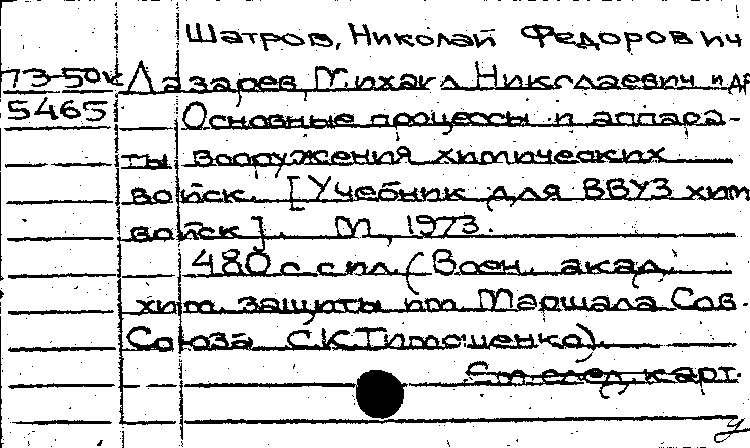 Шатров, Николай Федорович
73-50к Лазарев Михаил Николаевич и др
5465 Основные процессы и аппара-
ты вооружения химических
войск. [Учебник для ВВУЗ хим
войск]. М, 1973.
480 с с ил. (Воен. акад.
хим. защиты им Маршала Сов.
Союза С.К.Тимошенко).
См след. карт.